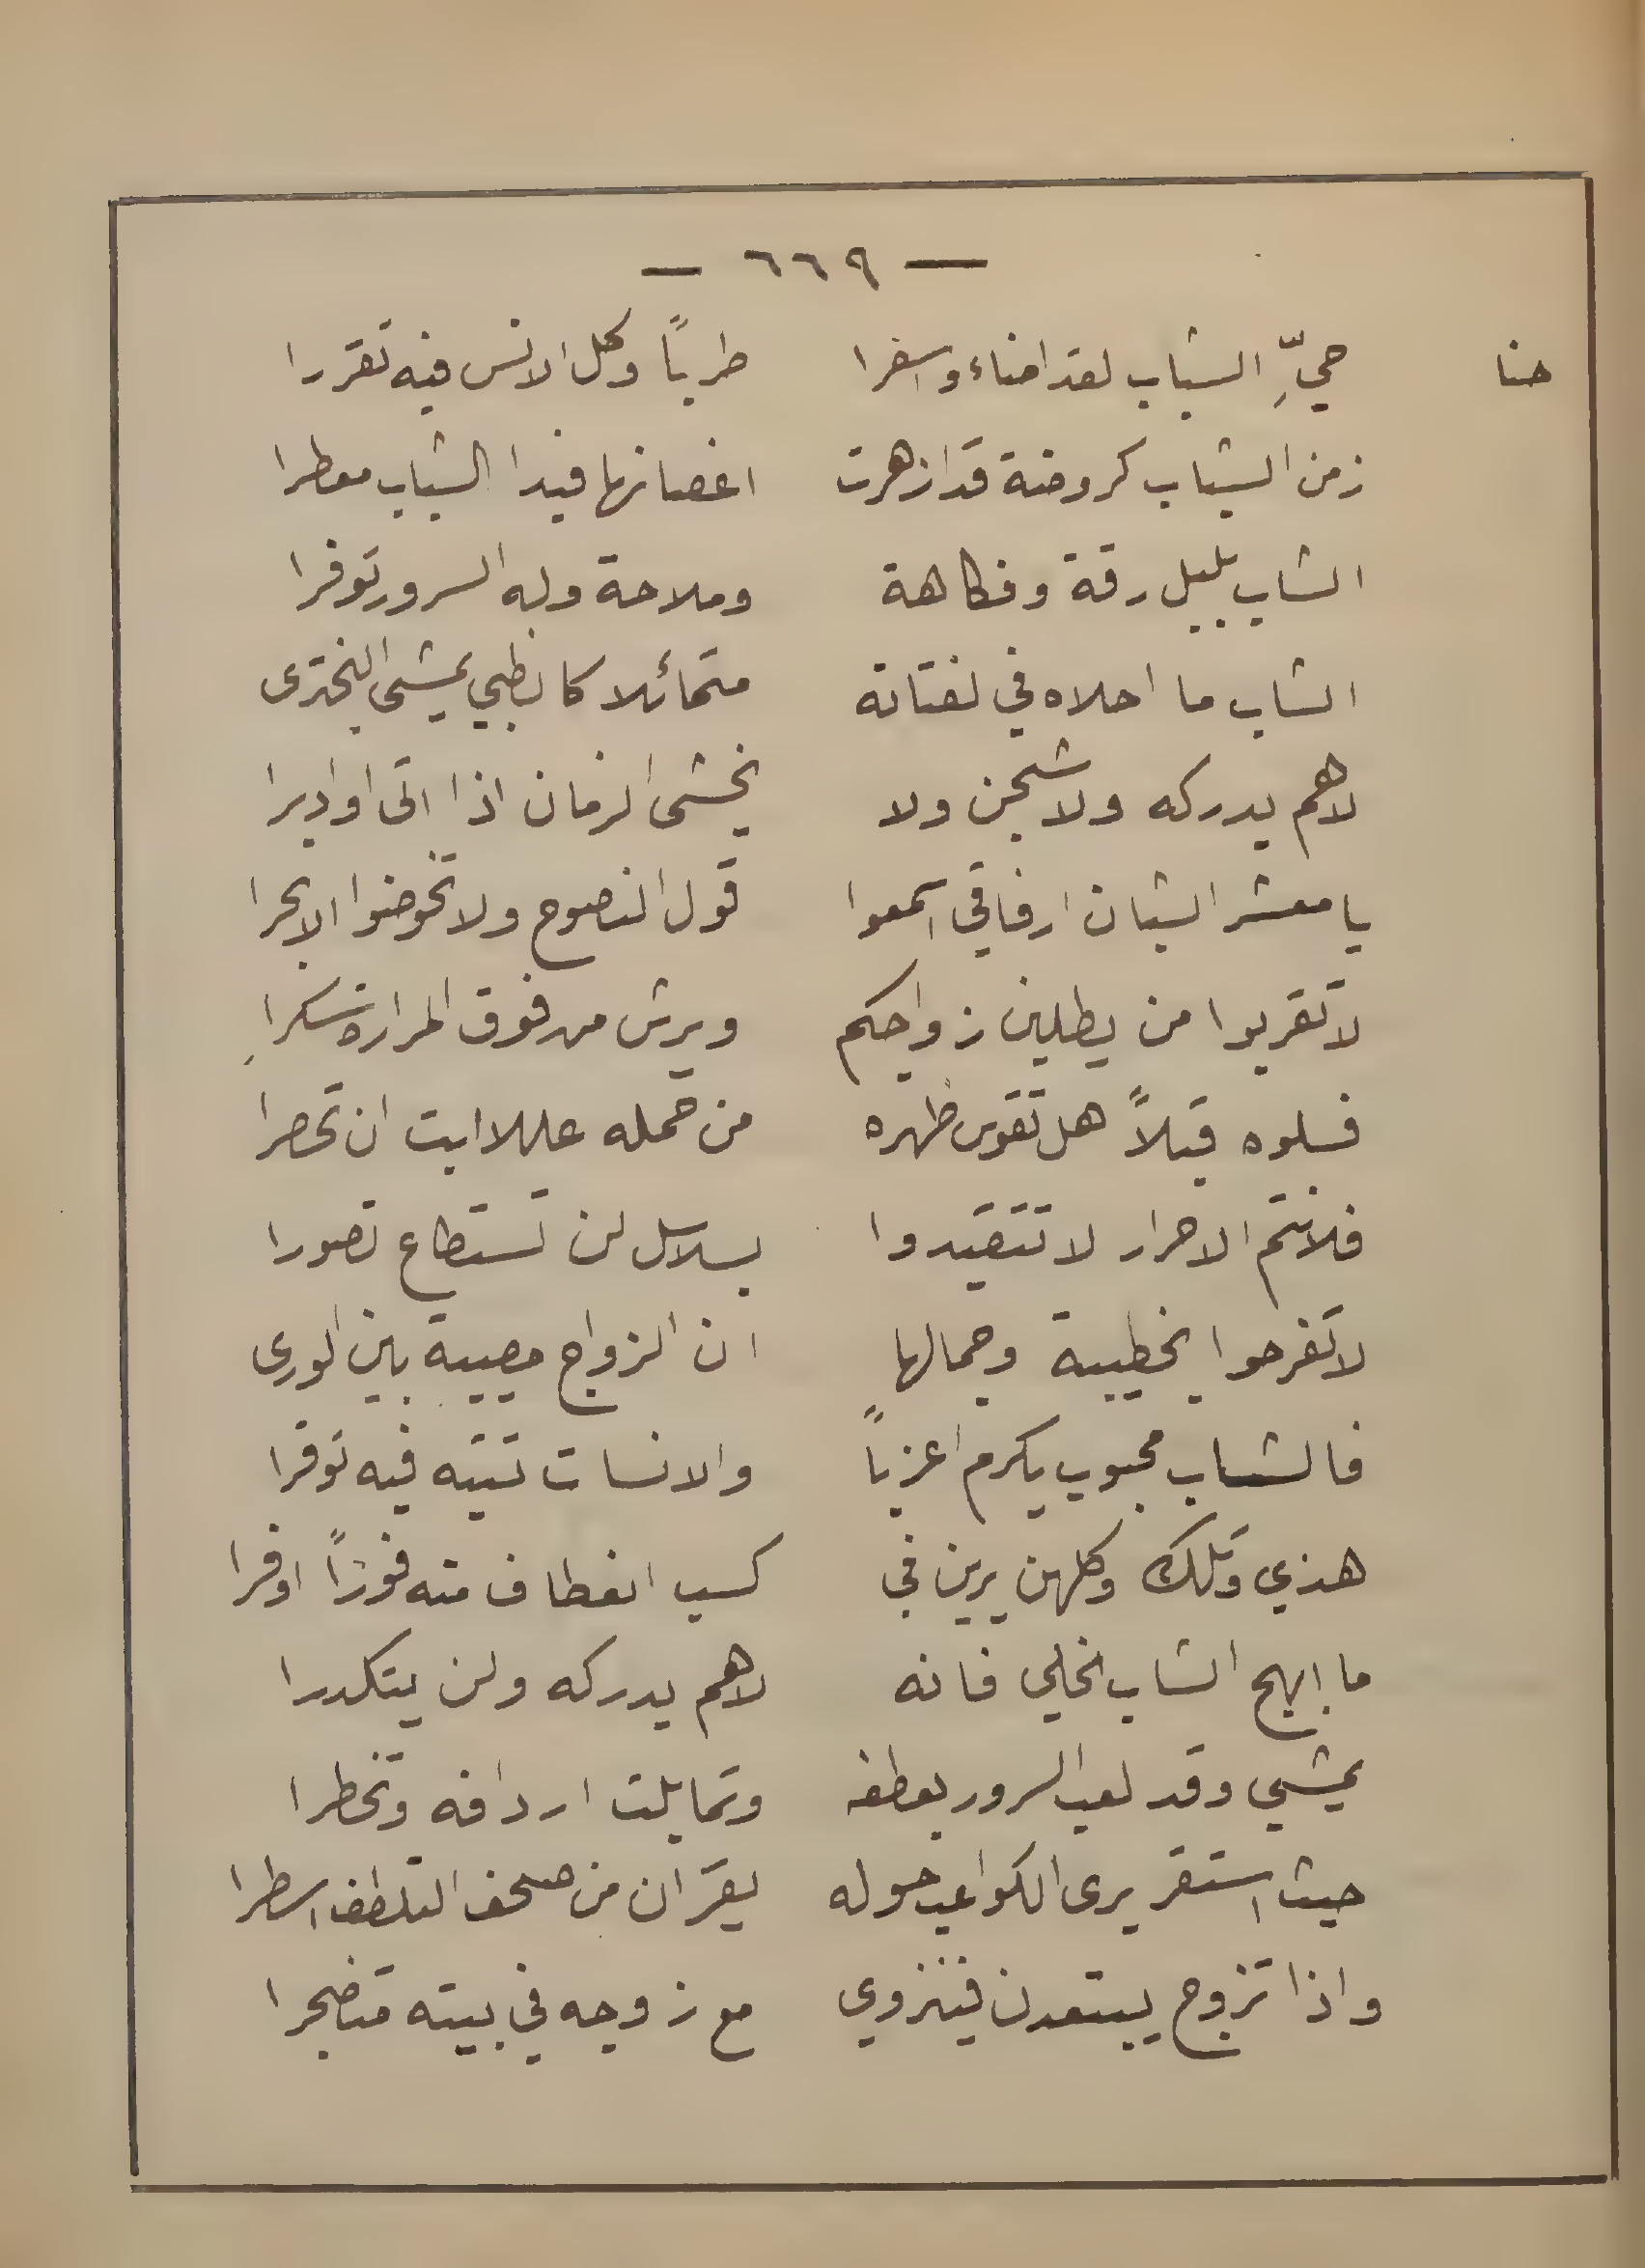 — ٦٦٩ —
حنا حيِّ الشباب لقد اضاء واسفرا طرباً وكل الانس فيه تقررا
زمن الشباب كروضة قد ازهرت اغصانها فبدا الشباب معطرا
الشاب بلبل رقة وفكاهة وملاحة وله السرور توفرا
الشاب ما احلاه في لفتاته متمائلا كالظبي يمشي البختري
لا هم يدركه ولا شجن ولا يخشى الزمان اذا اتى او ادبرا
يا معشر الشبان ارفاقي اسمعوا قول النصوح ولا تخوضوا الابحرا
لا تقربوا من يطلبن زواجكم ويرش من فوق المرارة سكرا
فسلوه قبلاً هل تقوس ظهره من حمله عللا ابت ان تحصرا
فلانتم الاحرار لا تتقيدوا بسلاسل لن تستطاع تصورا
لا تفرحوا بخطيبة وجمالها ان الزواج مصيبة بين الورى
فالشاب محبوب يكرم اعزباً والانسات تتيه فيه توقرا
هذي وتلك وكلهن يرين في كسب انعطاف منه فوزاً اوفرا
ما ابهج الشاب الخلي فانه لا هم يدركه ولن يتكدرا
يمشي وقد لعب السرور بعطفه وتمايلت اردافه وتخطرا
حيث استقر يرى الكواعب حوله يقرَان من صحف التلطف اسطرا
واذا تزوج يبتعدن فينزوي مع زوجه في بيته متضجرا